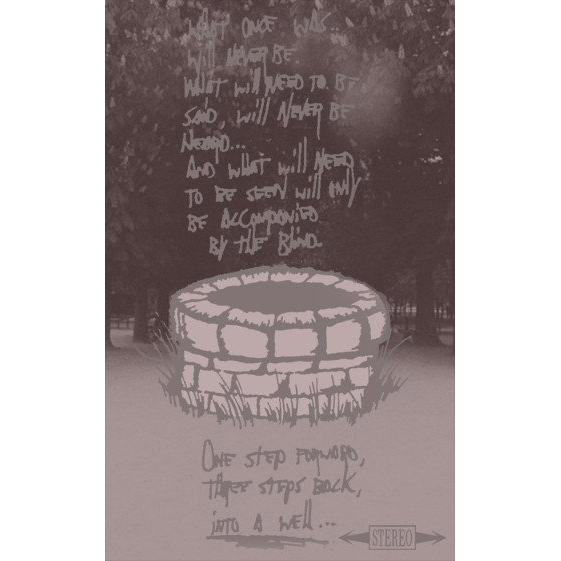 WHAT ONCE WAS...
will NEVER BE.
WHAT will NEED TO BE
SAID, will NEVER BE
HEARD...
AND WHAT will NEED
TO BE SEEN will ONLY
BE ACCOMPANIED
BY THE BLIND.
ONE STEP FORWARD,
THREE STEPS BACK,
INTO A WELL...
STEREO